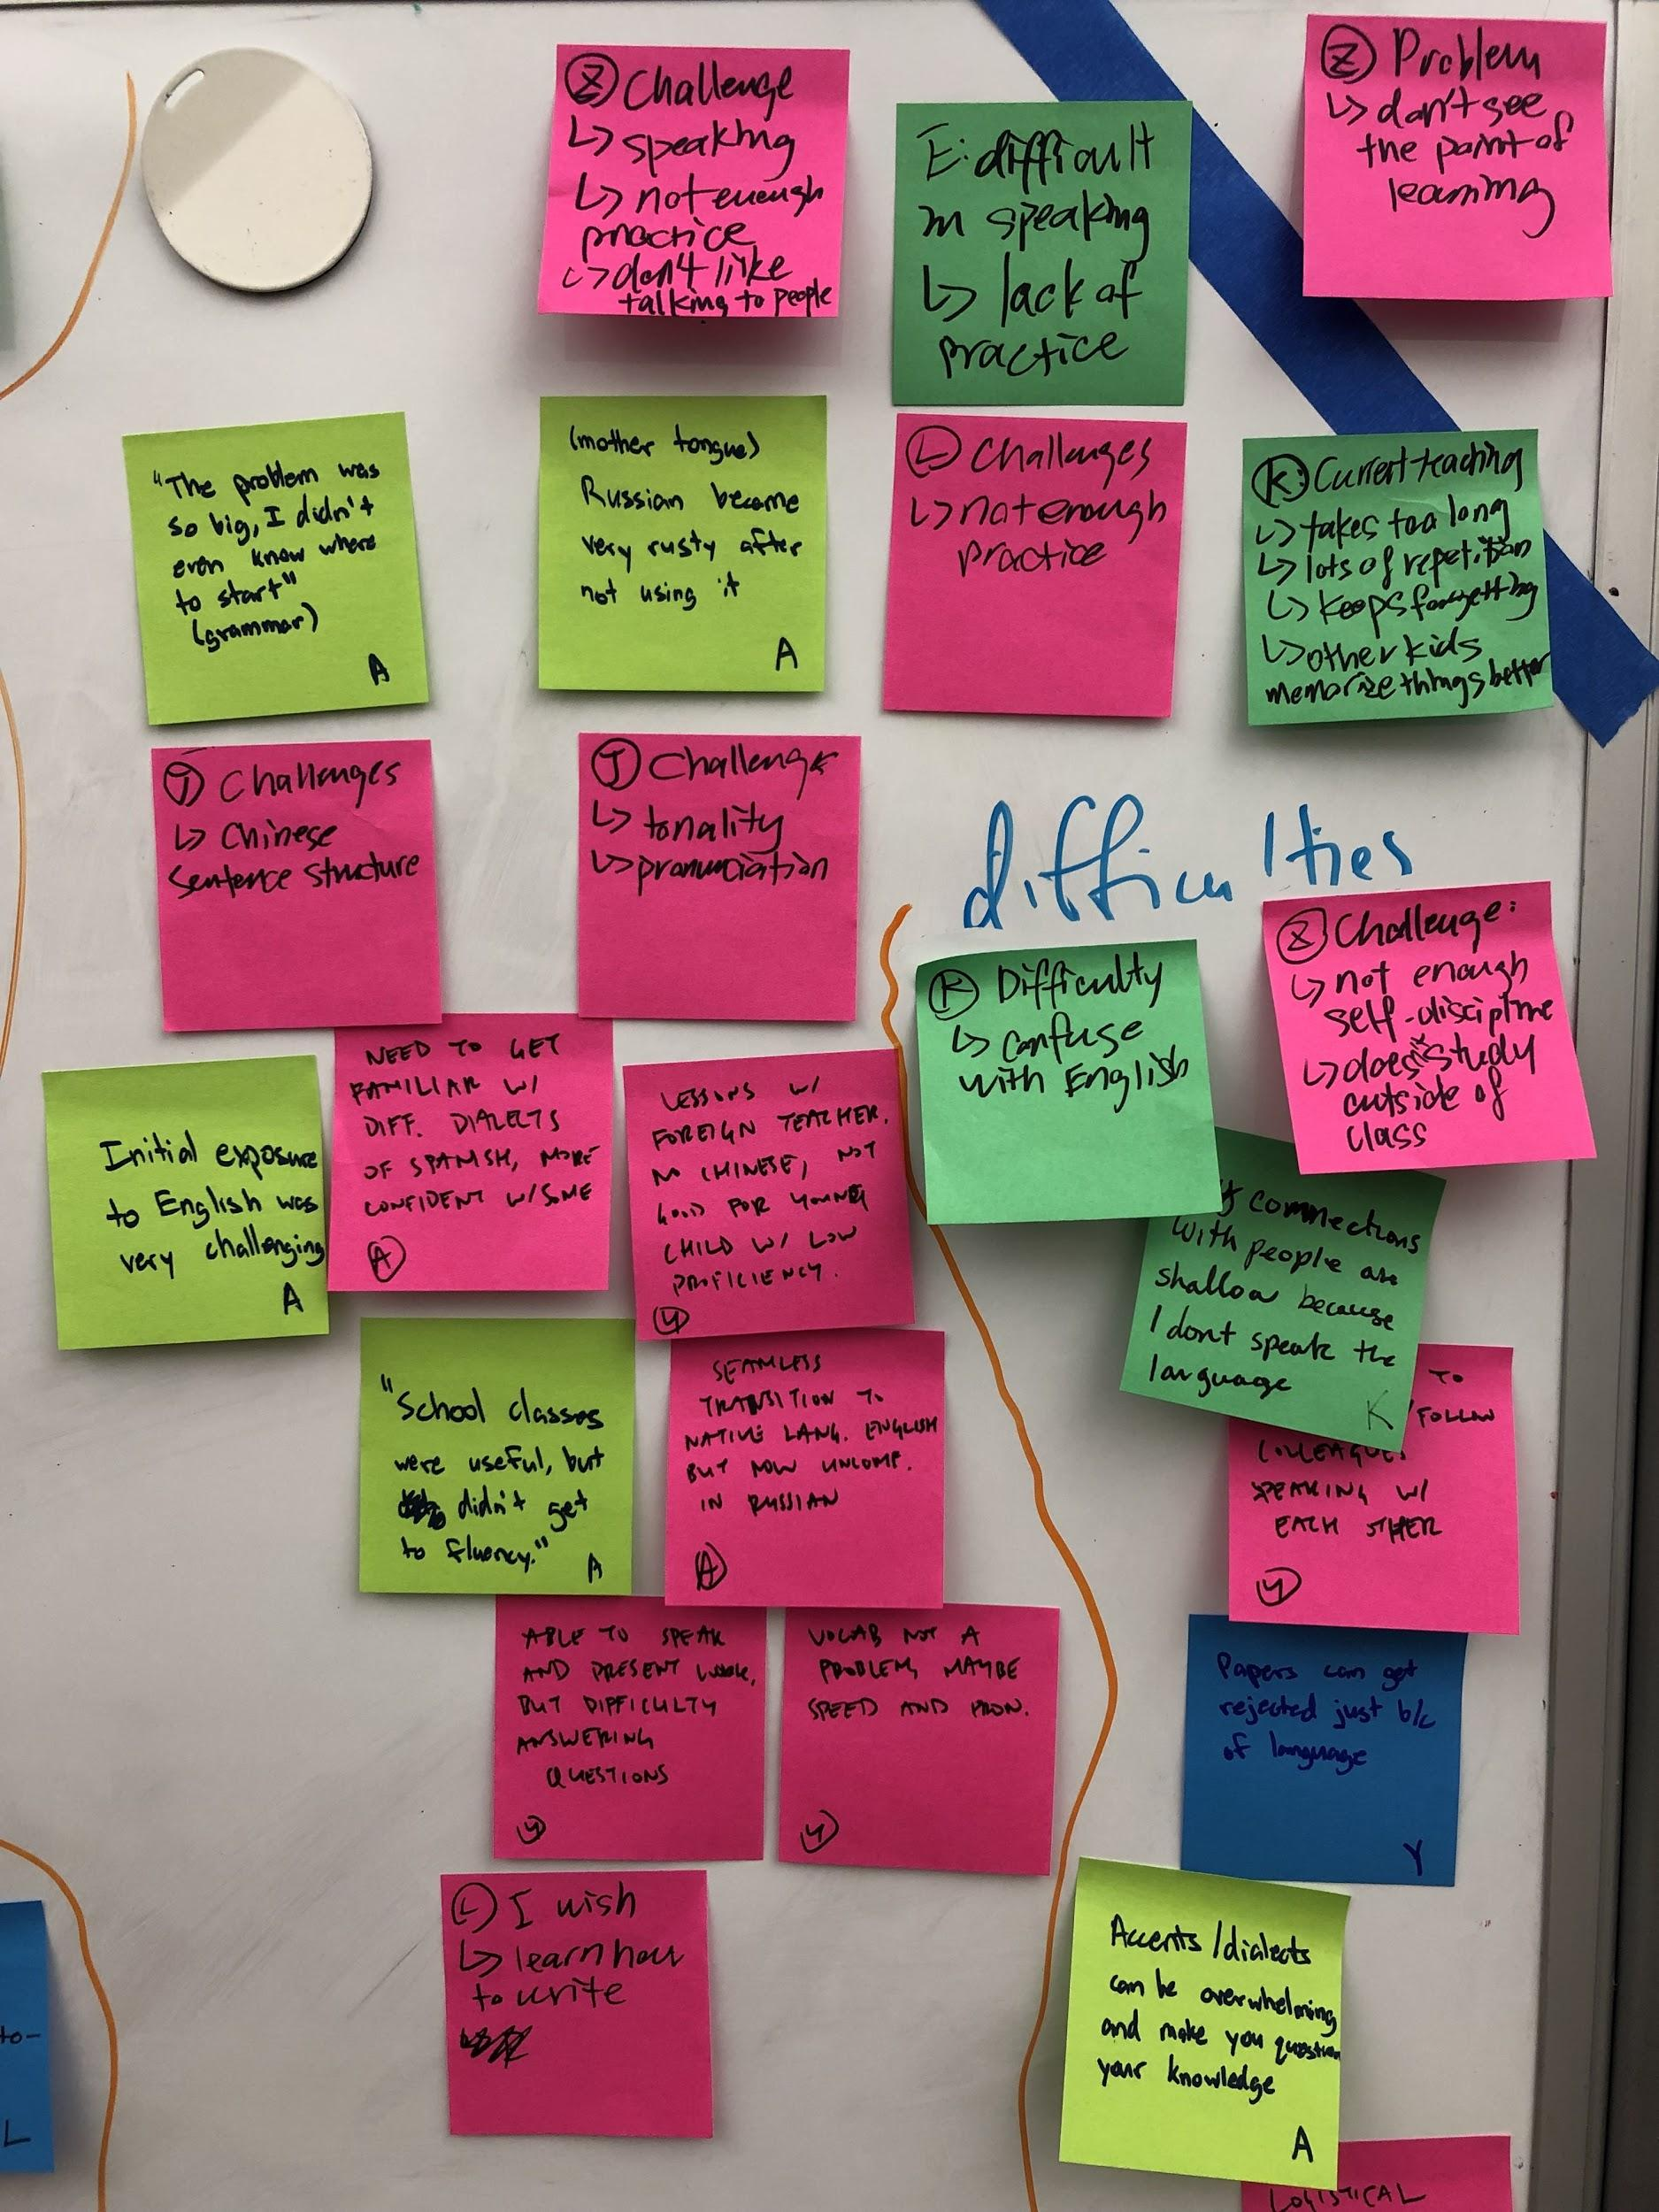 Z Challenge
↳ speaking
↳ not enough
practice
↳ don't like
talking to people
E: difficult
in speaking
↳ lack of
practice
Z Problem
↳ don't see
the point of
learning
"The problem was
so big, I didn't
even know where
to start"
(grammar)
A
(mother tongue)
Russian became
very rusty after
not using it
A
L Challenges
↳ not enough
practice
K: Current teaching
↳ takes too long
↳ lots of repetition
↳ keeps forgetting
↳ other kids
memorize things better
J Challenges
↳ Chinese
sentence structure
J Challenge
↳ tonality
↳ pronunciation
difficulties
K Difficulty
↳ confuse
with English
Z Challenge:
↳ not enough
self-discipline
↳ doesn't study
outside of
class
Initial exposure
to English was
very challenging
A
NEED TO GET
FAMILIAR W/
DIFF. DIALECTS
OF SPANISH, MORE
CONFIDENT W/ SOME
A
LESSONS W/
FOREIGN TEACHER.
NO CHINESE, NOT
GOOD FOR YOUNG
CHILD W/ LOW
PROFICIENCY.
Y
connections
with people are
shallow because
I dont speak the
language
K
"School classes
were useful, but
didn't get
to fluency."
A
SEAMLESS
TRANSITION TO
NATIVE LANG. ENGLISH
BUT NOW UNCOMF.
IN RUSSIAN
A
TO
FOLLOW
COLLEAGUES
SPEAKING W/
EACH OTHER
Y
ABLE TO SPEAK
AND PRESENT
BUT DIFFICULTY
ANSWERING
QUESTIONS
Y
VOCAB NOT A
PROBLEM, MAYBE
SPEED AND PRON.
Y
Papers can get
rejected just b/c
of language
Y
L I wish
↳ learn how
to write
Accents/dialects
can be overwhelming
and make you question
your knowledge
A
to-
L
LOGISTICAL